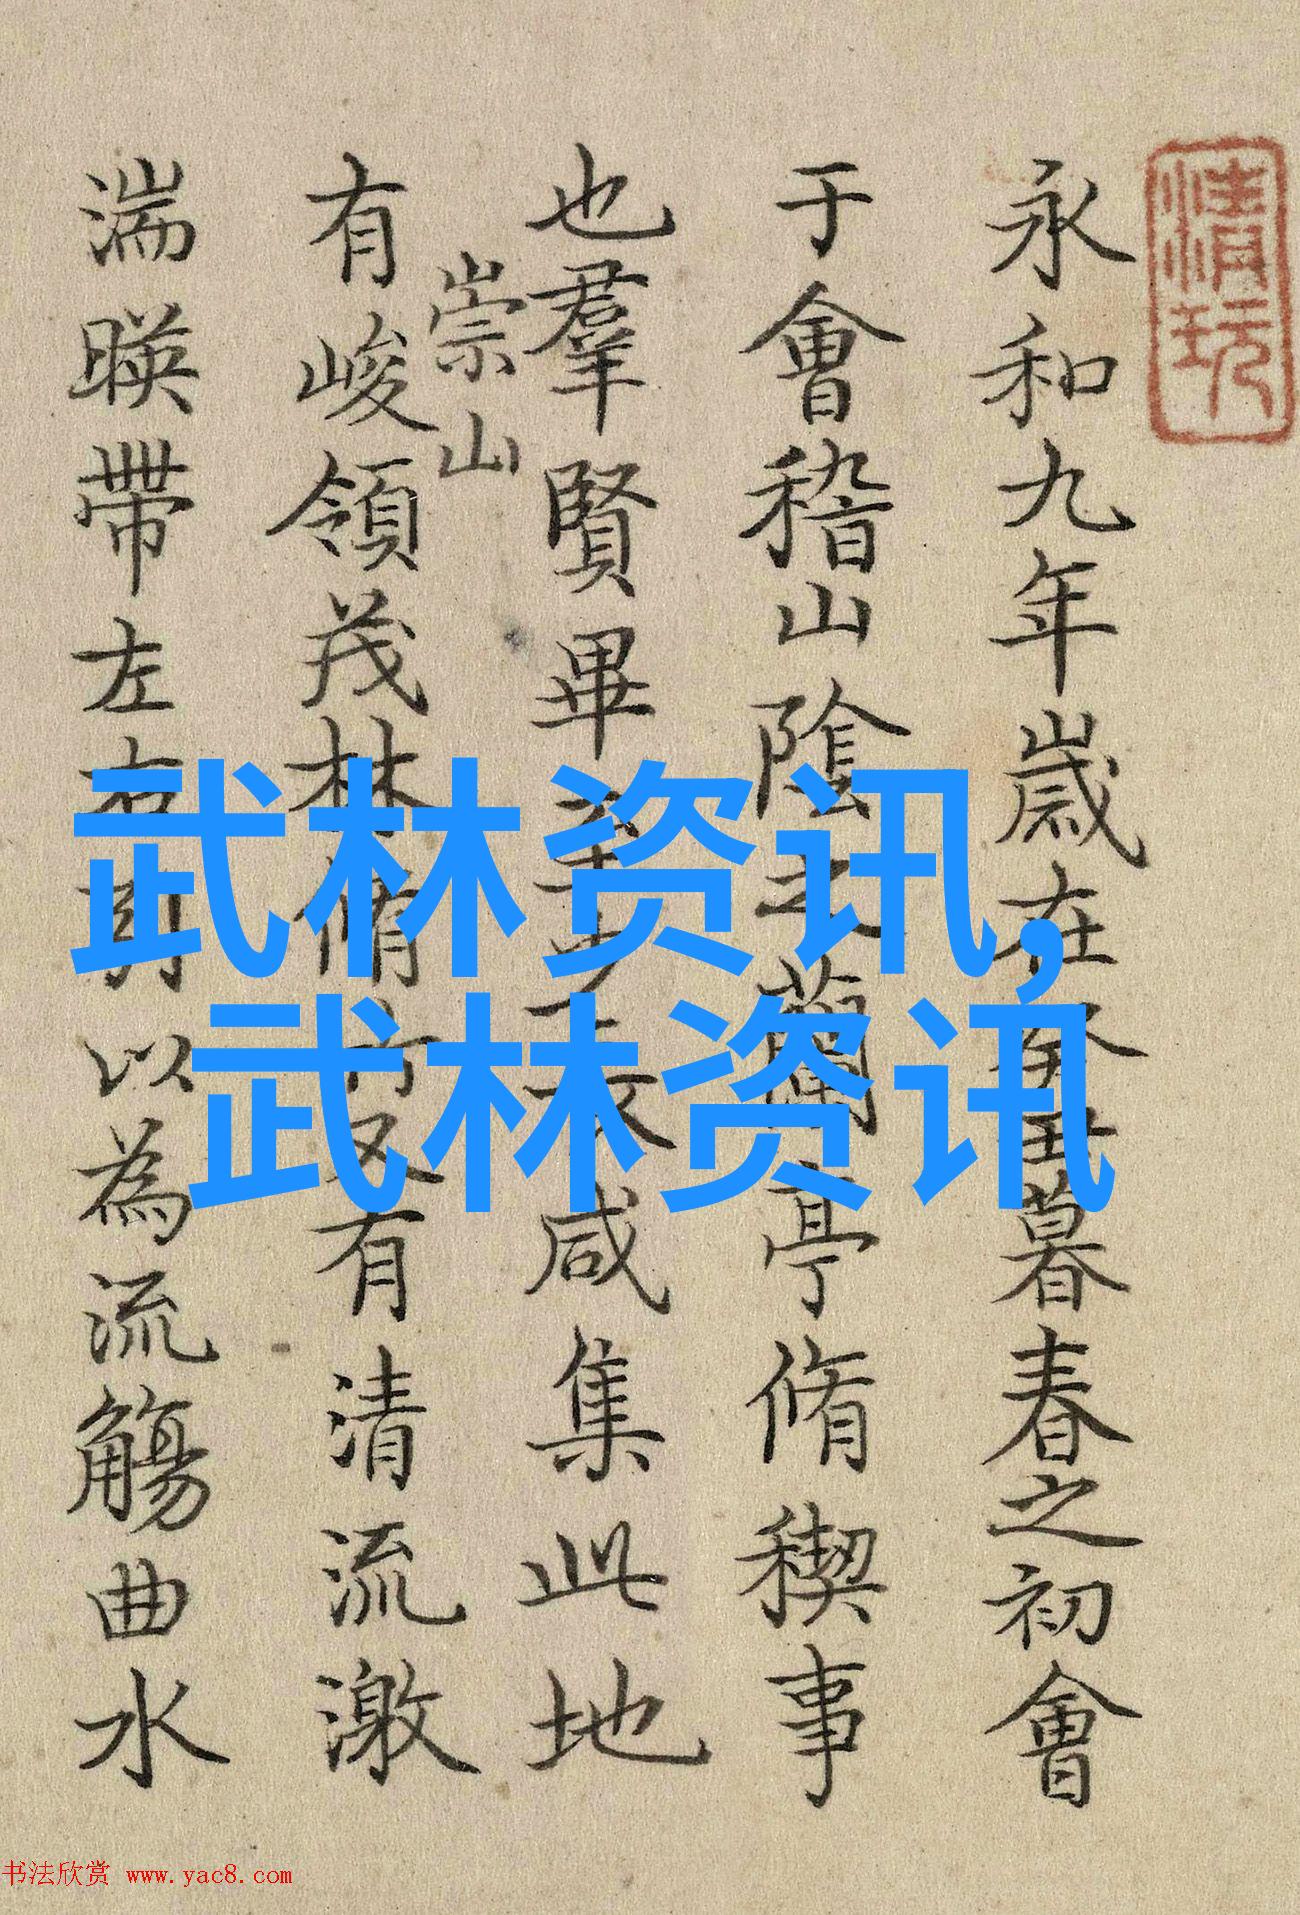 清玩
永和九年歲在癸丑暮春之初會
于會稽山陰之蘭亭脩稧事
也羣賢畢至少長咸集此地
崇山
有峻領茂林脩竹又有清流激
湍暎帶左右引以為流觴曲水
武林资讯,
武林资讯
书法欣赏 www.yac8.com